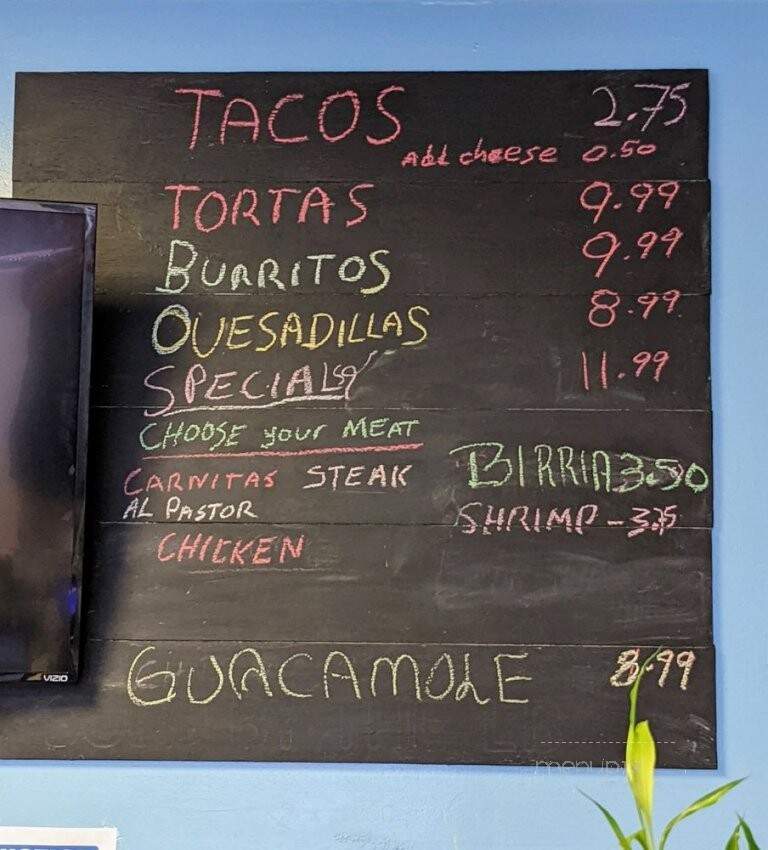 TACOS 2.75
Add cheese 0.50
TORTAS 9.99
BURRITOS 9.99
QUESADILLAS 8.99
SPECIAL 11.99
CHOOSE your MEAT
CARNITAS STEAK BIRRIA 3.50
AL PASTOR SHRIMP - 3.75
CHICKEN
GUACAMOLE 8.99
VIZIO